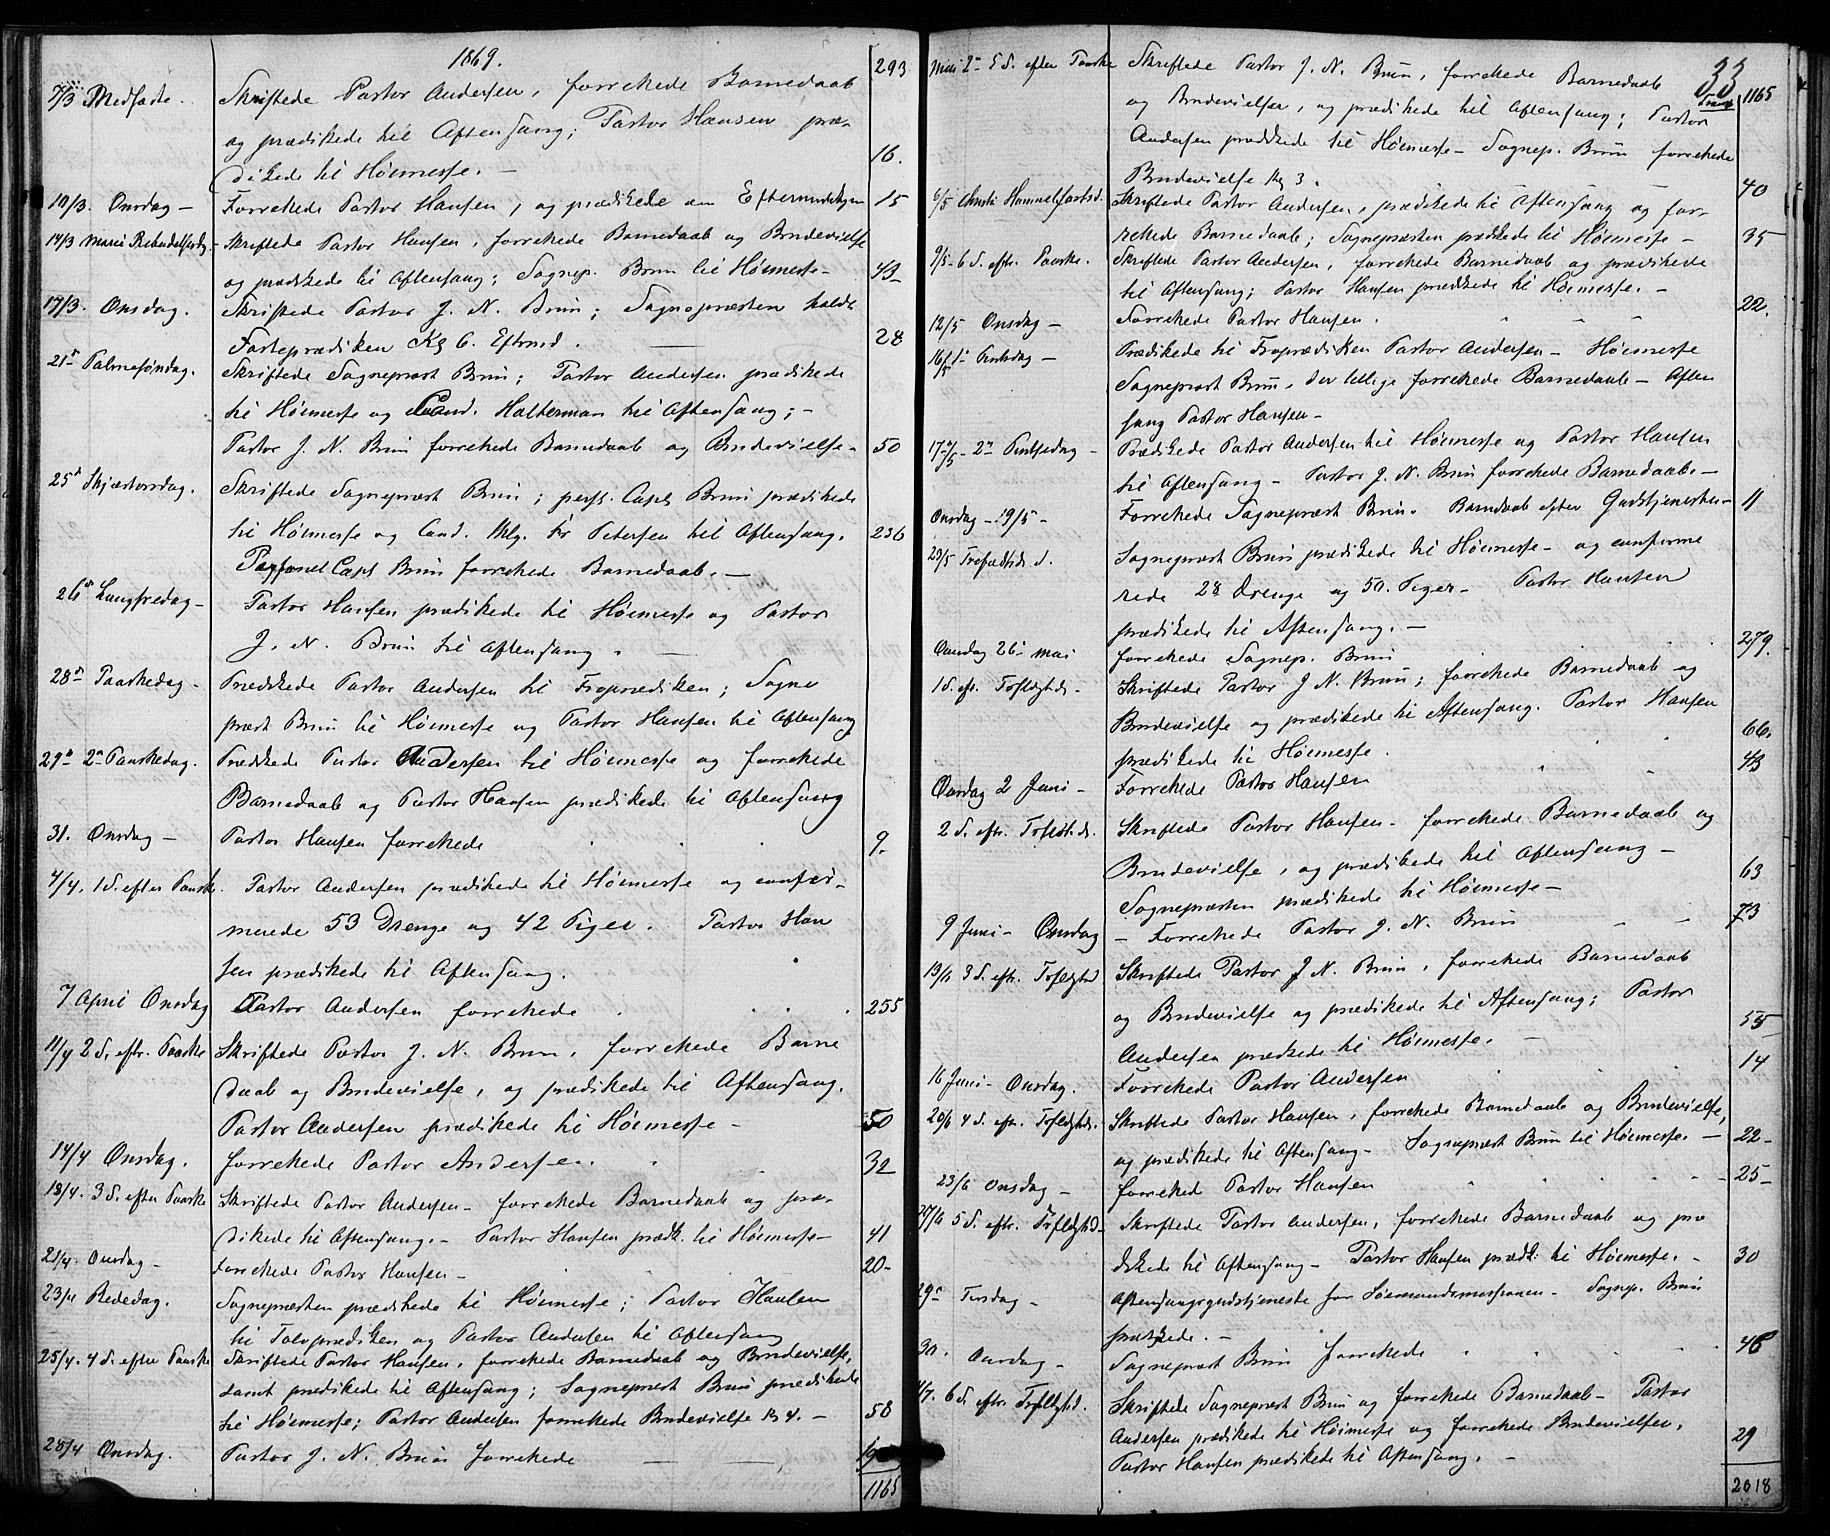 1869.
293
7/3 Medfaste. Skriftede Pastor Andersen, forrettede Barnedaab
og prædikede til Aftensang; Pastor Hansen præ-
dikede til Høimesse. — 16.
10/3. Onsdag — Forrettede Pastor Hansen, og prædikede om Eftermiddagen 15
14/3 Mariæ Bebudelsesdg. Skriftede Pastor Hansen, forrettede Barnedaab og Brudevielse
og prædikede til Aftensang; Sognep. Brun til Høimesse — 43
17/3. Onsdag. Skriftede Pastor J. N. Brun; Sognepræsten holdt
Fasteprædiken Kl 6. Eftmd. — 28
21de Palmesøndag. Skriftede Sognepræst Brun; Pastor Andersen prædikede
til Høimesse og Cand. Halterman til Aftensang; —
Pastor J. N. Brun forrettede Barnedaab og Brudevielse — 50
25de Skjærtorsdag. Skriftede Sognepræst Brun; pers. Capl Brun prædikede
til Høimesse og Cand. Petersen til Aftensang. 236
Personel Capl Brun forrettede Barnedaab. —
26de Langfredag — Pastor Hansen prædikede til Høimesse og Pastor
J. N. Brun til Aftensang. —
28de Paaskedag — Prædikede Pastor Andersen til Froprædiken; Sogne
præst Brun til Høimesse og Pastor Hansen til Aftensang
29de 2den Paaskedag. Prædikede Pastor Andersen til Høimesse og forrettede
Barnedaab og Pastor Hansen prædikede til Aftensang
31. Onsdag — Pastor Hansen forrettede 9.
4/4. 1 S. efter Paaske. Pastor Andersen prædikede til Høimesse og confir-
merede 53 Drenge og 42 Piger. Pastor Han
sen prædikede til Aftensang.
7 April Onsdag Pastor Andersen forrettede 255
11/4 2 S. eftr. Paaske Skriftede Pastor J. N. Brun, forrettede Barne
daab og Brudevielse, og prædikede til Aftensang.
Pastor Andersen prædikede til Høimesse — 50
14/4 Onsdag. forrettede Pastor Andersen. 32
18/4. 3 S. efter Paaske Skriftede Pastor Andersen — forrettede Barnedaab og præ-
dikede til Aftensang. — Pastor Hansen prædk. til Høimesse — 41
21/4. Onsdag — Forrettede Pastor Hansen — 20-
23/4 Bededag. Sognepræsten prædikede til Høimesse; Pastor Hansen
til Tolvprædiken og Pastor Andersen til Aftensang
25/4. 4 S. efter Paaske Skriftede Pastor Hansen, forrettede Barnedaab og Brudevielse,
samt prædikede til Aftensang; Sognepræst Brun prædikede
til Høimesse; Pastor Andersen forrettede Brudevielse Kl 4. — 58
28/4 Onsdag. Pastor J. N. Brun forrettede — 19
1165
33
Mai 2den 5 S. efter Paaske Skriftede Pastor J. N. Brun, forrettede Barnedaab 1165
og Brudevielse, og prædikede til Aftensang; Pastor
Andersen prædikede til Høimesse — Sognep. Brun forrettede
Brudevielse Kl 3. 40
6/5 Christi Himmelfartsd. Skriftede Pastor Andersen, prædikede til Aftensang og for-
rettede Barnedaab; Sognepræsten prædikede til Høimesse — 35
9/5 - 6 S. eftr. Paaske. Skriftede Pastor Andersen, forrettede Barnedaab og prædikede
til Aftensang; Pastor Hansen prædikede til Høimesse. — 22.
12/5 Onsdag — Forrettede Pastor Hansen.
16/5 Pintsdag — Prædikede til Froprædiken Pastor Andersen — Høimesse
Sognepræst Brun, der tillige forrettede Barnedaab — Aften
sang Pastor Hansen —
17/5 - 2den Pintsedag — Prædikede Pastor Andersen til Høimesse og Pastor Hansen
til Aftensang — Pastor J. N. Brun forrettede Barnedaab —
Onsdag - 19/5 - Forrettede Sognepræst Brun. Barnedaab efter Gudstjenesten — 11
23/5 Trefoldtids d. Sognepræst Brun prædikede til Høimesse — og confirme
rede 28 Drenge og 50 Piger — Pastor Hansen
prædikede til Aftensang. — 279.
Onsdag 26de Mai forrettede Sognep. Brun
1 S. ef. Trefldghds — Skriftede Pastor J N. Brun; forrettede Barnedaab og
Brudevielse og prædikede til Aftensang. Pastor Hansen
prædikede til Høimesse. 66.
Onsdag 2 Juni — Forrettede Pastor Hansen 43
2 S. eftr. Trefldtids. Skriftede Pastor Hansen — forrettede Barnedaab og
Brudevielse, og prædikede til Aftensang —
Sognepræsten prædikede til Høimesse — 63
9 Juni - Onsdag — Forrettede Pastor J. N. Brun 73
13/6 3 S. eftr. Trefldghd Skriftede Pastor J N. Brun, forrettede Barnedaab
og Brudevielse og prædikede til Aftensang; Pastor
Andersen prædikede til Høimesse. — 55
16 Juni - Onsdag. Forrettede Pastor Andersen 14
20/6 4 S. eftr. Trefldghds. Skriftede Pastor Hansen, forrettede Barnedaab og Brudevielse,
og prædikede til Aftensang — Sognepræst Brun til Høimesse. — 22-
23/6 Onsdag — forrettede Pastor Hansen 25-
27/6 5 S. eftr. Trefldghd — Skriftede Pastor Andersen, forrettede Barnedaab og præ
dikede til Aftensang — Pastor Hansen prædk. til Høimesse. — 30
29de Tirsdag — Aftensangsgudstjeneste for Sømandsmissionen — Sognep. Brun
prædikede. —
30. Onsdag — Sognepræst Brun forrettede 46
4/7. 6 S. eftr. Trefldghd. Skriftede Sognepræst Brun og forrettede Barnedaab — Pastor
Andersen prædikede til Høimesse og forrettede Brudevielser.
Pastor Hansen prædikede til Aftensang. — 29
2018